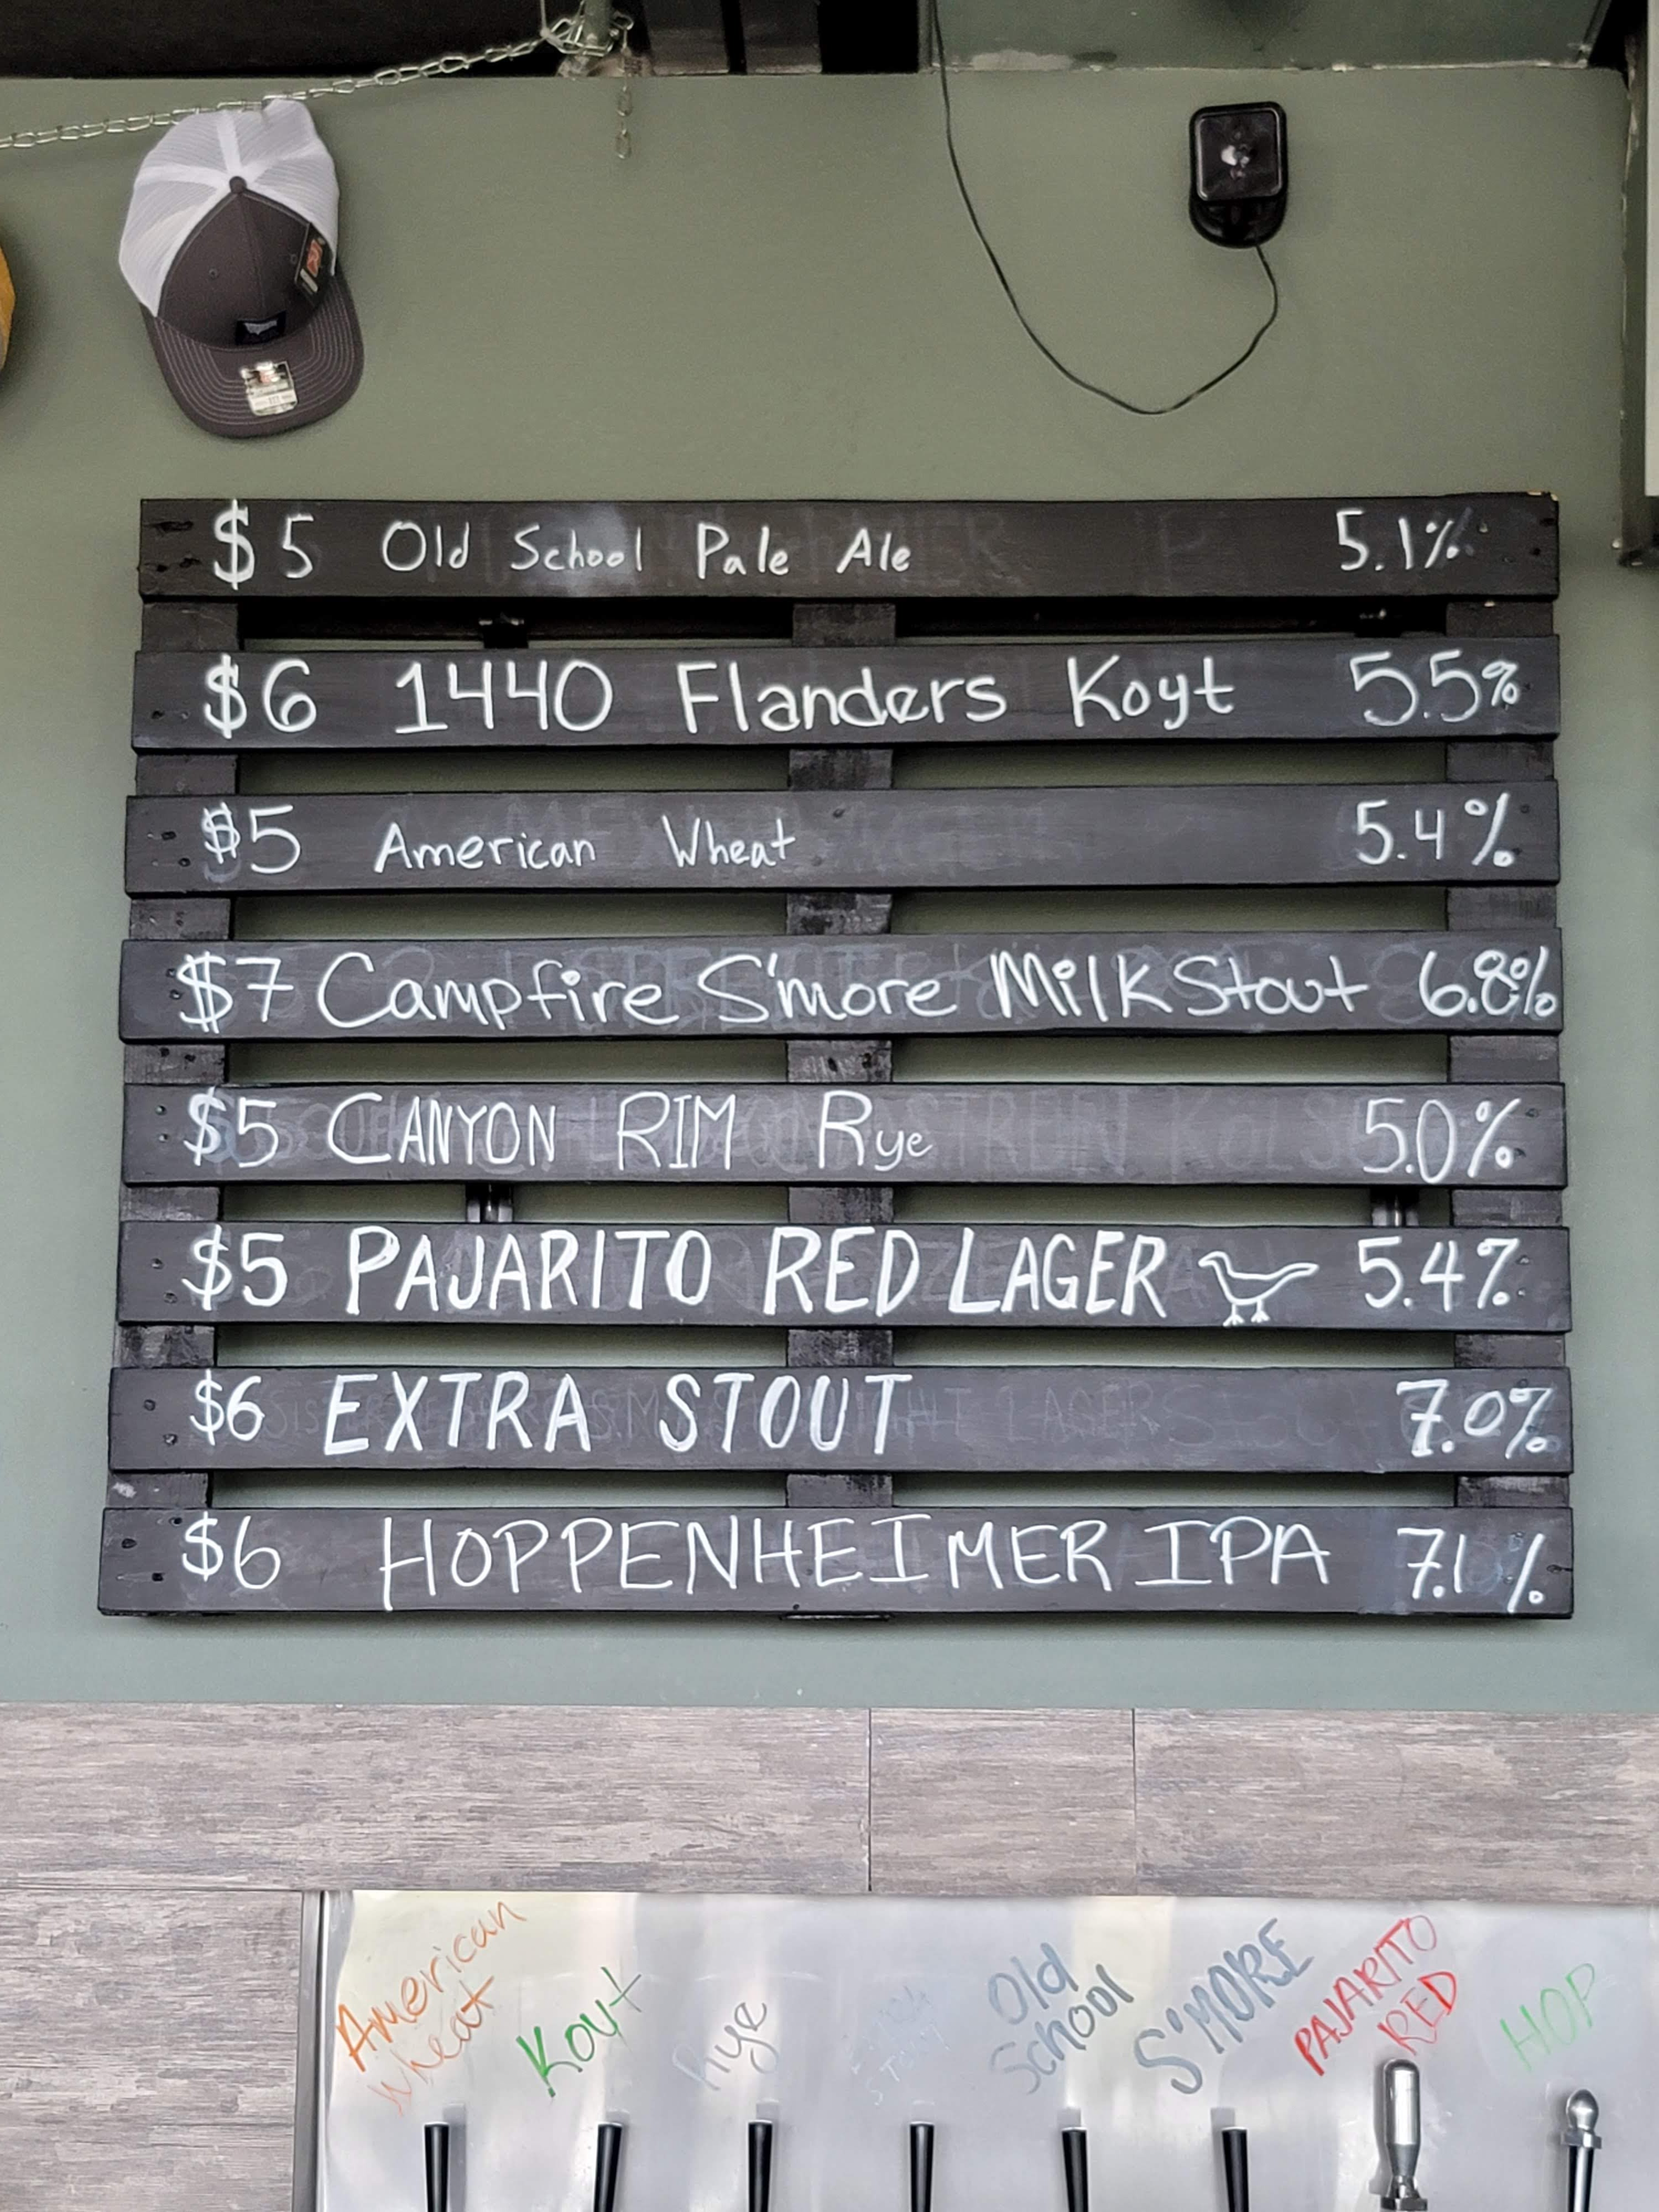 $5 Old School Pale Ale 5.1%
$6 1440 Flanders Koyt 5.5%
$5 American Wheat 5.4%
$7 Campfire S'more Milk Stout 6.8%
$5 CANYON RIM Rye 5.0%
$5 PAJARITO RED LAGER 5.4%
$6 EXTRA STOUT 7.0%
$6 HOPPENHEIMER IPA 7.1%
American
Wheat
Koyt
Rye
Old
School
S'MORE
PAJARITO
RED
HOP